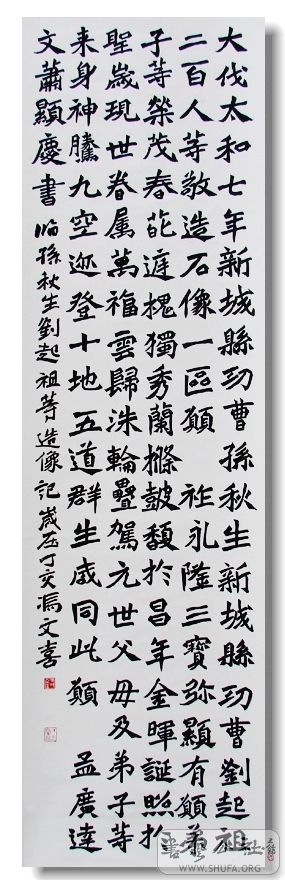 大伐太和七年新城縣功曹孫秋生新城縣功曹劉起祖
二百人等敬造石像一區願 祚永隆三寶弥顯有願弟
子等榮茂春葩庭槐獨秀蘭條鼓馥於昌年金暉誕照於
聖歲現世眷属萬福雲歸洙輪疊駕元世父母及弟子等
来身神騰九空迹登十地五道群生咸同此願 孟廣達
文蕭顯慶書 臨孫秋生劉起祖等造像記歲在丁亥馮文喜
WWW.SHUFA.ORG